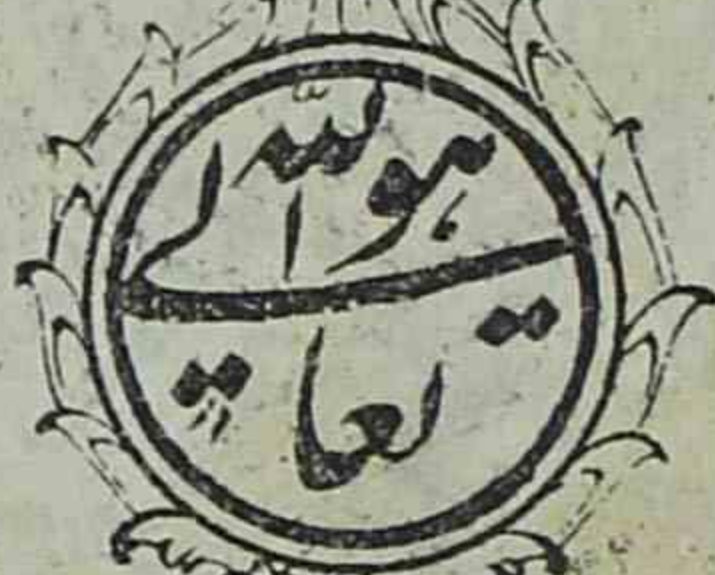 هو الله
تعالى